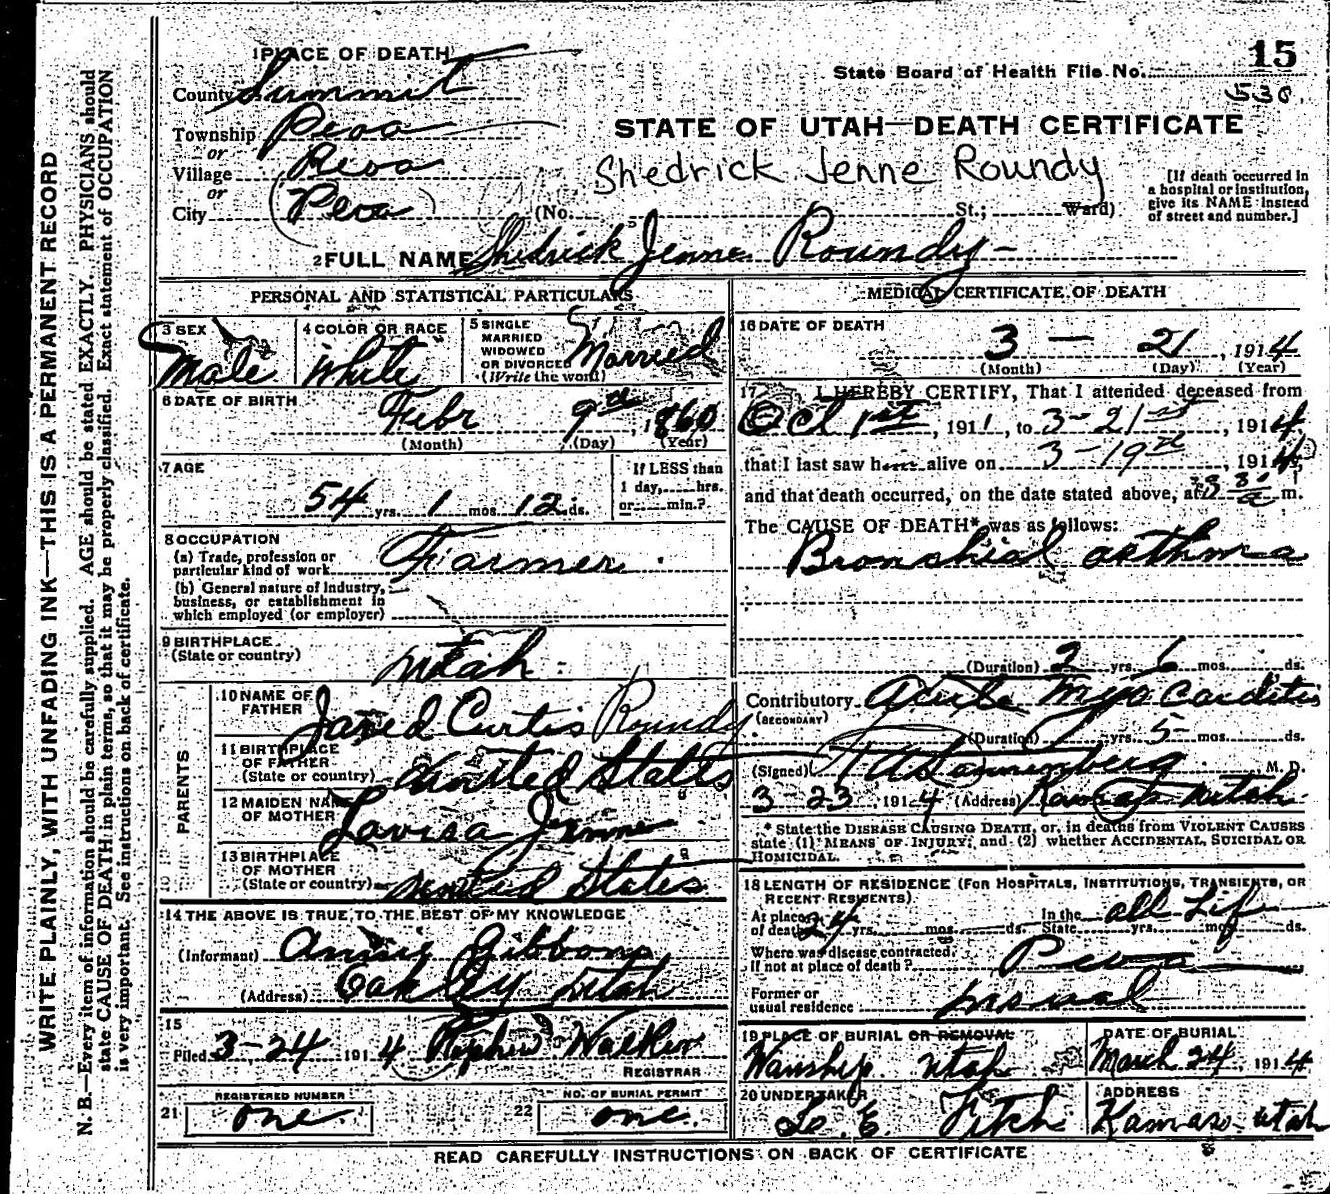 WRITE PLAINLY, WITH UNFADING INK—THIS IS A PERMANENT RECORD
N. B.—Every item of information should be carefully supplied. AGE should be stated EXACTLY. PHYSICIANS should
state CAUSE OF DEATH in plain terms, so that it may be properly classified. Exact statement of OCCUPATION
is very important. See instructions on back of certificate.
1 PLACE OF DEATH
County Summit
Township Peoa
or
Village Peoa
or
City Peoa
15
State Board of Health File No.
530
STATE OF UTAH—DEATH CERTIFICATE
Shedrick Jenne Roundy
[If death occurred in
a hospital or institution,
give its NAME instead
of street and number.]
(No. St.; Ward)
2 FULL NAME Shedrick Jenne Roundy
PERSONAL AND STATISTICAL PARTICULARS
3 SEX
Male
4 COLOR OR RACE
White
5 SINGLE
MARRIED
WIDOWED
OR DIVORCED
(Write the word)
Married
6 DATE OF BIRTH
Febr 9th, 1860
(Month) (Day) (Year)
7 AGE
54 yrs. 1 mos. 12 ds.
If LESS than
1 day, hrs.
or min.?
8 OCCUPATION
(a) Trade, profession or
particular kind of work Farmer
(b) General nature of industry,
business, or establishment in
which employed (or employer)
9 BIRTHPLACE
(State or country)
Utah
PARENTS
10 NAME OF
FATHER
Jared Curtis Roundy
11 BIRTHPLACE
OF FATHER
(State or country)
United States
12 MAIDEN NAME
OF MOTHER
Lavisa Jenne
13 BIRTHPLACE
OF MOTHER
(State or country)
United States
14 THE ABOVE IS TRUE TO THE BEST OF MY KNOWLEDGE
(Informant) Annie Gibbons
(Address) Oakley Utah
15
Filed 3-24 1914 Walker
REGISTRAR
21 REGISTERED NUMBER
one.
22 NO. OF BURIAL PERMIT
one.
MEDICAL CERTIFICATE OF DEATH
16 DATE OF DEATH
3 — 21, 1914
(Month) (Day) (Year)
17 I HEREBY CERTIFY, That I attended deceased from
Oct 1st, 1911, to 3-21st, 1914
that I last saw h alive on 3-19th, 1914,
and that death occurred, on the date stated above, at 3 30 a m.
The CAUSE OF DEATH* was as follows:
Bronchial asthma
(Duration) 2 yrs. 6 mos. ds.
Contributory Acute Myocarditis
(SECONDARY)
(Duration) yrs. 5 ds.
(Signed) M. D.
3-23, 1914 (Address) Kamas Utah
* State the DISEASE CAUSING DEATH, or, in deaths from VIOLENT CAUSES
state (1) MEANS OF INJURY; and (2) whether ACCIDENTAL, SUICIDAL OR
HOMICIDAL.
18 LENGTH OF RESIDENCE (FOR HOSPITALS, INSTITUTIONS, TRANSIENTS, OR
RECENT RESIDENTS)
At place
of death 24 yrs. mos. ds. In the
State all Life yrs. mos. ds.
Where was disease contracted,
if not at place of death? Peoa
Former or
usual residence
19 PLACE OF BURIAL OR REMOVAL
Wanship Utah
DATE OF BURIAL
March 24, 1914
20 UNDERTAKER
E. Fitch
ADDRESS
Kamas Utah
READ CAREFULLY INSTRUCTIONS ON BACK OF CERTIFICATE